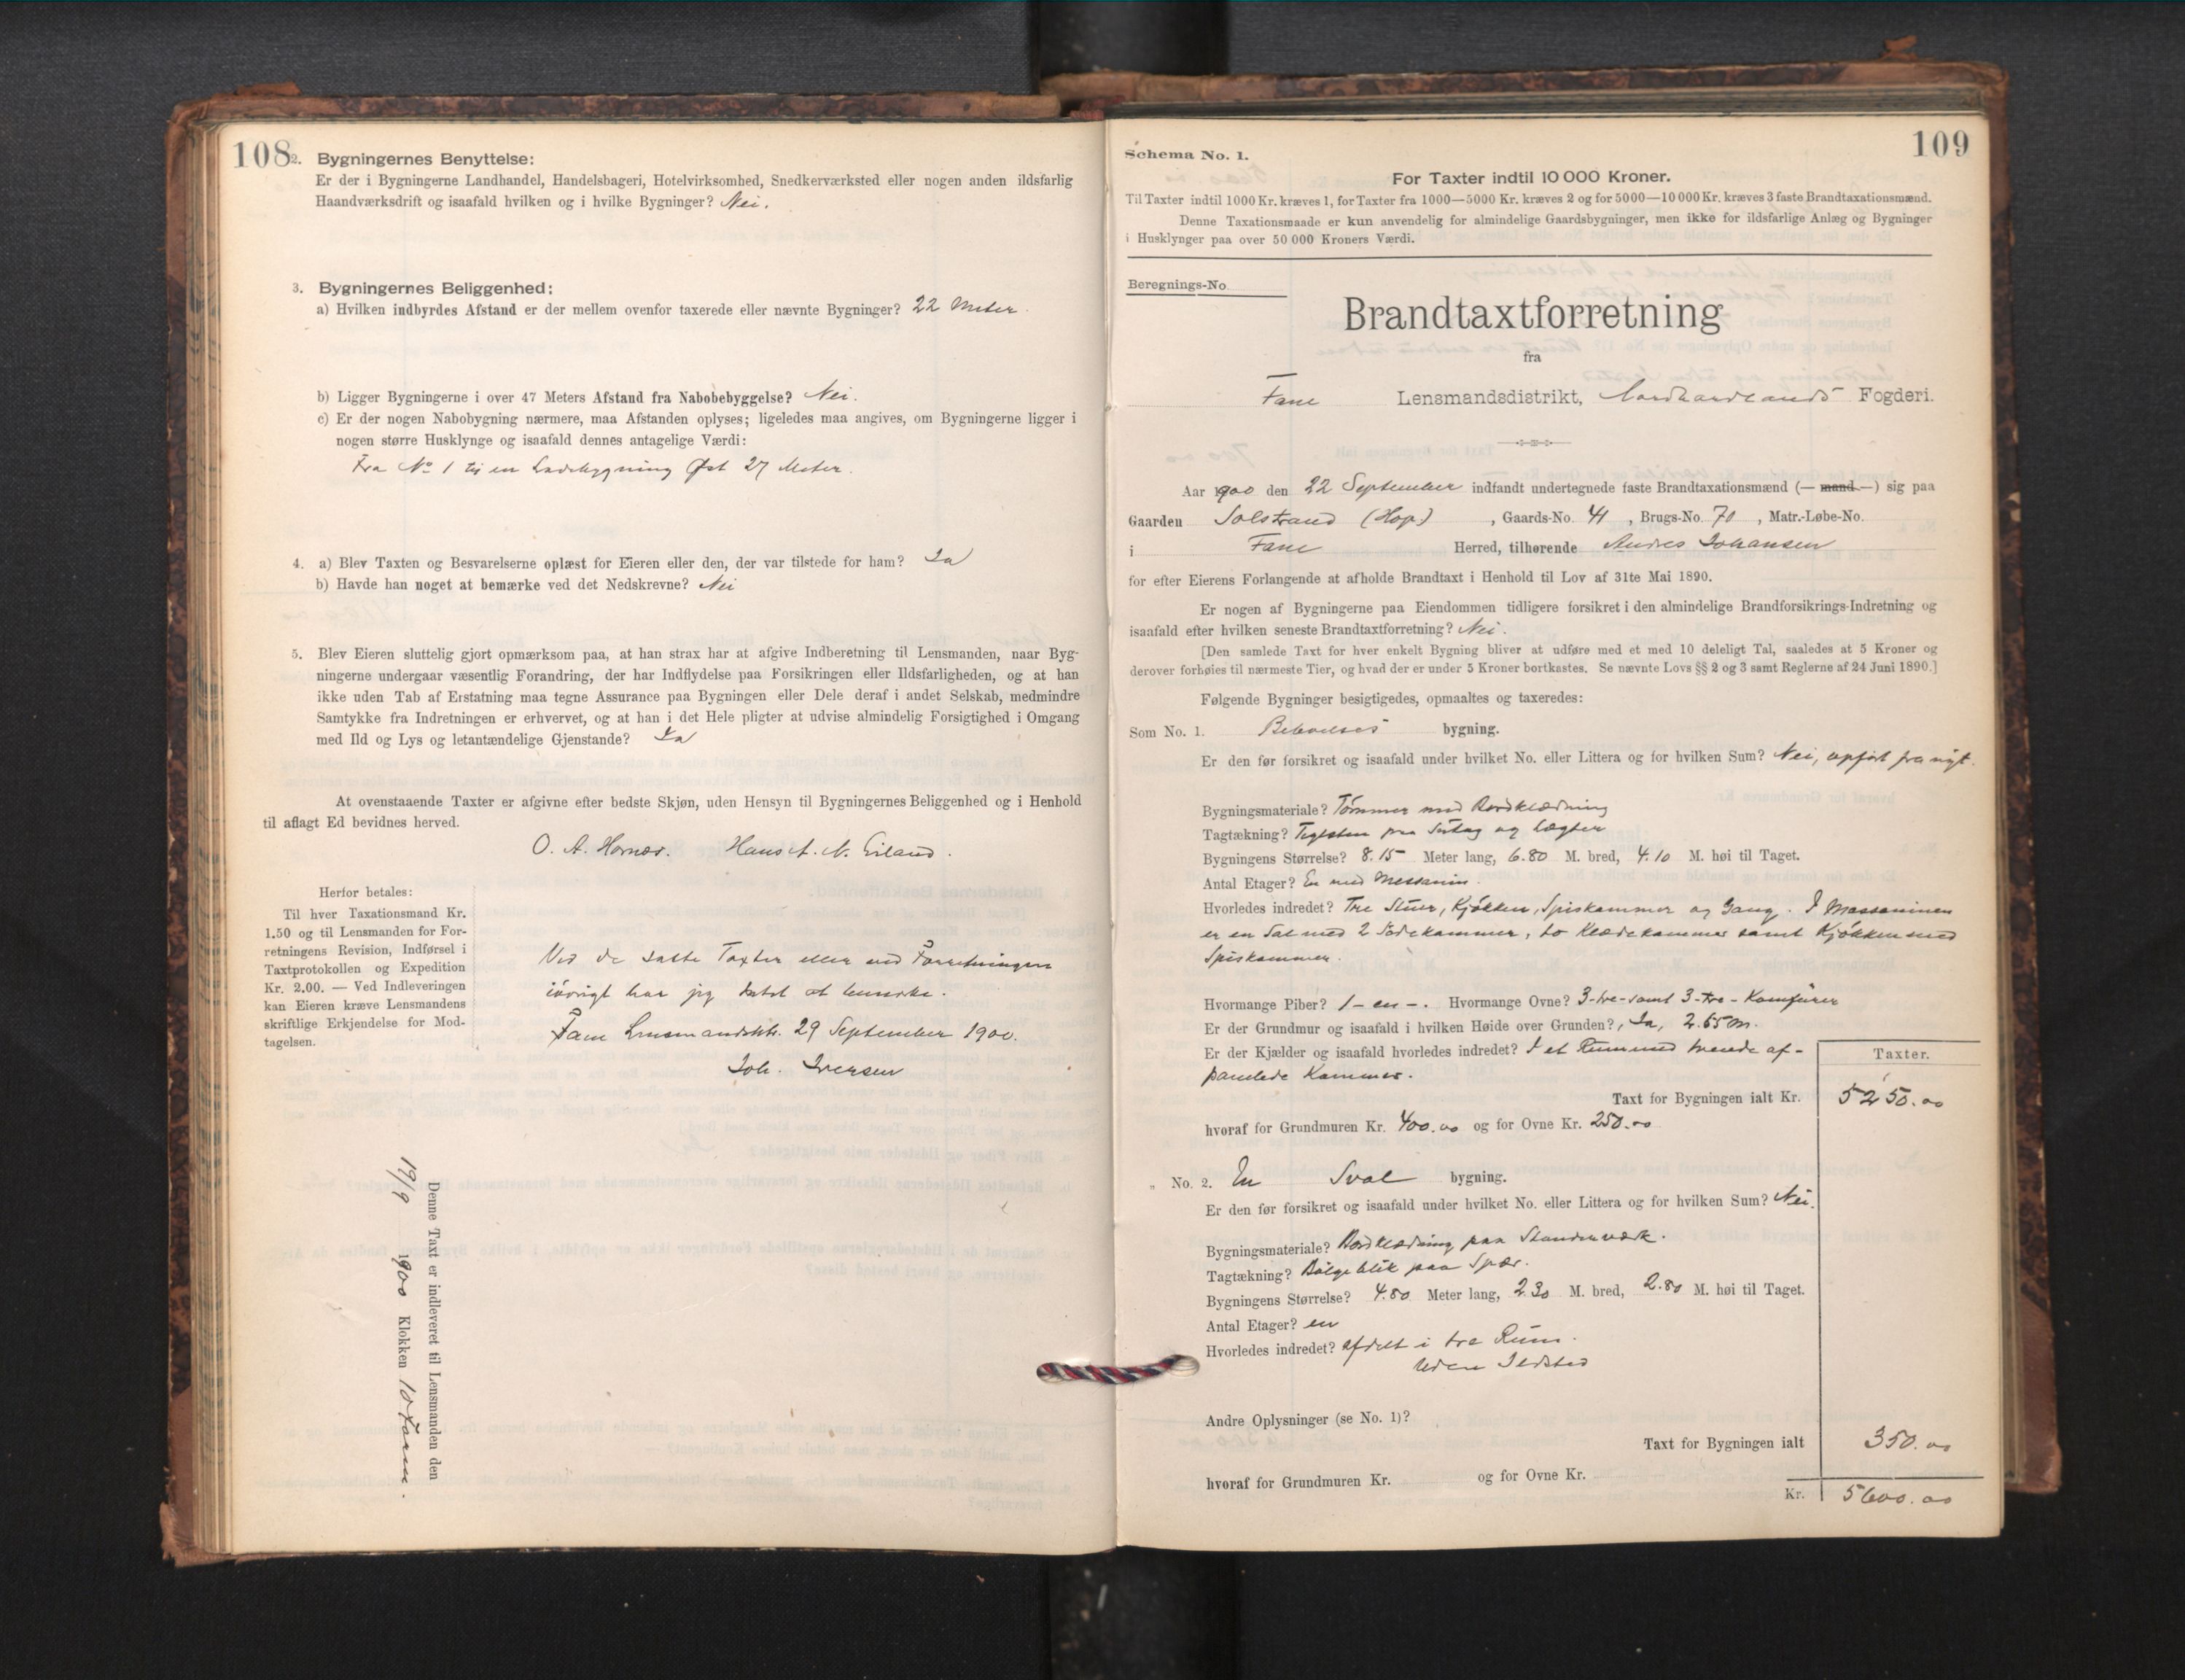 108
2. Bygningernes Benyttelse:
Er der i Bygningerne Landhandel, Handelsbageri, Hotelvirksomhed, Snedkerværksted eller nogen anden ildsfarlig
Haandværksdrift og isaafald hvilken og i hvilke Bygninger? Nei.
3. Bygningernes Beliggenhed:
a) Hvilken indbyrdes Afstand er der mellem ovenfor taxerede eller nævnte Bygninger? 22 Meter.
b) Ligger Bygningerne i over 47 Meters Afstand fra Nabobebyggelse? Nei.
c) Er der nogen Nabobygning nærmere, maa Afstanden oplyses; ligeledes maa angives, om Bygningerne ligger i
nogen større Husklynge og isaafald dennes antagelige Værdi:
Fra No 1 til en Ladebygning Øst 27 Meter.
4. a) Blev Taxten og Besvarelserne oplæst for Eieren eller den, der var tilstede for ham? Ja
b) Havde han noget at bemærke ved det Nedskrevne? Nei
5. Blev Eieren sluttelig gjort opmærksom paa, at han strax har at afgive Indberetning til Lensmanden, naar Byg-
ningerne undergaar væsentlig Forandring, der har Indflydelse paa Forsikringen eller Ildsfarligheden, og at han
ikke uden Tab af Erstatning maa tegne Assurance paa Bygningen eller Dele deraf i andet Selskab, medmindre
Samtykke fra Indretningen er erhvervet, og at han i det Hele pligter at udvise almindelig Forsigtighed i Omgang
med Ild og Lys og letantændelige Gjenstande? Ja
At ovenstaaende Taxter er afgivne efter bedste Skjøn, uden Hensyn til Bygningernes Beliggenhed og i Henhold
til aflagt Ed bevidnes herved.
O. A. Hans A. N.
Herfor betales:
Til hver Taxationsmand Kr.
1.50 og til Lensmanden for For-
retningens Revision, Indførsel i
Taxtprotokollen og Expedition
Kr. 2.00. — Ved Indleveringen
kan Eieren kræve Lensmandens
skriftlige Erkjendelse for Mod-
tagelsen.
Ved de satte Taxter eller ved Forretningen
iøvrigt har jeg Intet at bemærke.
Fane Lensmandsktr. 29 September 1900.
Joh. Iversen
Denne Taxt er indleveret til Lensmanden den
19/9 1900 Klokken 10 Form.
109
Schema No. 1.
For Taxter indtil 10 000 Kroner.
Til Taxter indtil 1000 Kr. kræves 1, for Taxter fra 1000—5000 Kr. kræves 2 og for 5000—10 000 Kr. kræves 3 faste Brandtaxationsmænd.
Denne Taxationsmaade er kun anvendelig for almindelige Gaardsbygninger, men ikke for ildsfarlige Anlæg og Bygninger
i Husklynger paa over 50 000 Kroners Værdi.
Beregnings-No
Brandtaxtforretning
fra
Fane Lensmandsdistrikt, Nordhordlands Fogderi.
Aar 1900 den 22 September indfandt undertegnede faste Brandtaxationsmænd (— mand —) sig paa
Gaarden Solstrand (Hop), Gaards-No. 41, Brugs-No. 70, Matr.-Løbe-No.
i Fane Herred, tilhørende Andres Johansen
for efter Eierens Forlangende at afholde Brandtaxt i Henhold til Lov af 31te Mai 1890.
Er nogen af Bygningerne paa Eiendommen tidligere forsikret i den almindelige Brandforsikrings-Indretning og
isaafald efter hvilken seneste Brandtaxtforretning? Nei.
[Den samlede Taxt for hver enkelt Bygning bliver at udføre med et med 10 deleligt Tal, saaledes at 5 Kroner og
derover forhøies til nærmeste Tier, og hvad der er under 5 Kroner bortkastes. Se nævnte Lovs §§ 2 og 3 samt Reglerne af 24 Juni 1890.]
Følgende Bygninger besigtigedes, opmaaltes og taxeredes:
Som No. 1. Beboelses bygning.
Er den før forsikret og isaafald under hvilket No. eller Littera og for hvilken Sum? Nei, opført fra nyt.
Bygningsmateriale? Tømmer med Bordklædning
Tagtækning? Teglsten paa Sutag og Lægter
Bygningens Størrelse? 8.15 Meter lang, 6.80 M. bred, 4.10 M. høi til Taget.
Antal Etager? En med Messanin.
Hvorledes indredet? Tre Stuer, Kjøkken, Spiskammer og Gang. I Messaninen
er en Sal med 2 Sidekammer, to Klædekammer samt Kjøkken med
Spiskammer.
Hvormange Piber? 1 - en -. Hvormange Ovne? 3-tre- samt 3-tre- Komfurer
Er der Grundmur og isaafald i hvilken Høide over Grunden?, Ja, 2.65 m.
Er der Kjælder og isaafald hvorledes indredet? I et Rum med trende af-
panelede Kammer.
Taxter.
Taxt for Bygningen ialt Kr. 5250.00
hvoraf for Grundmuren Kr. 400.00 og for Ovne Kr. 250.00
„ No. 2. En Sval bygning.
Er den før forsikret og isaafald under hvilket No. eller Littera og for hvilken Sum? Nei.
Bygningsmateriale? Bordklædning paa Standerværk.
Tagtækning? Bølgeblik paa Spær.
Bygningens Størrelse? 4.80 Meter lang, 2.30 M. bred, 2.80 M. høi til Taget.
Antal Etager? en
Hvorledes indredet? afdelt i tre Rum.
Uden Ildsted
Andre Oplysninger (se No. 1)?
Taxt for Bygningen ialt 350.00
hvoraf for Grundmuren Kr. og for Ovne Kr.
Kr. 5600.00